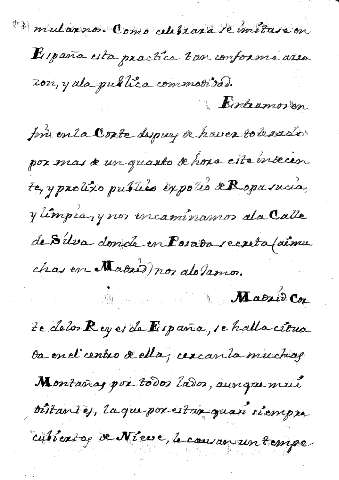 mularnos. Como celebrara se imitase en
España esta practica tan conforme a ra
zon, y a la publica commodidad.
Entramos en
fin en la Corte despues de haver tolerado
por mas de un quarto de hora este indecen
te, y prolixo publico expolio de Ropa sucia,
y limpia, y nos encaminamos a la Calle
de Silva donde en Posada secreta (ai mu
chas en Madrid) nos alojamos.
Madrid Cor
te de los Reyes de España, se halla situa
da en el centro de ella; cercanla muchas
Montañas por todos lados, aunque mui
distantes, la que por estar quasi siempre
cubiertas de Nieve, le causan un tempe